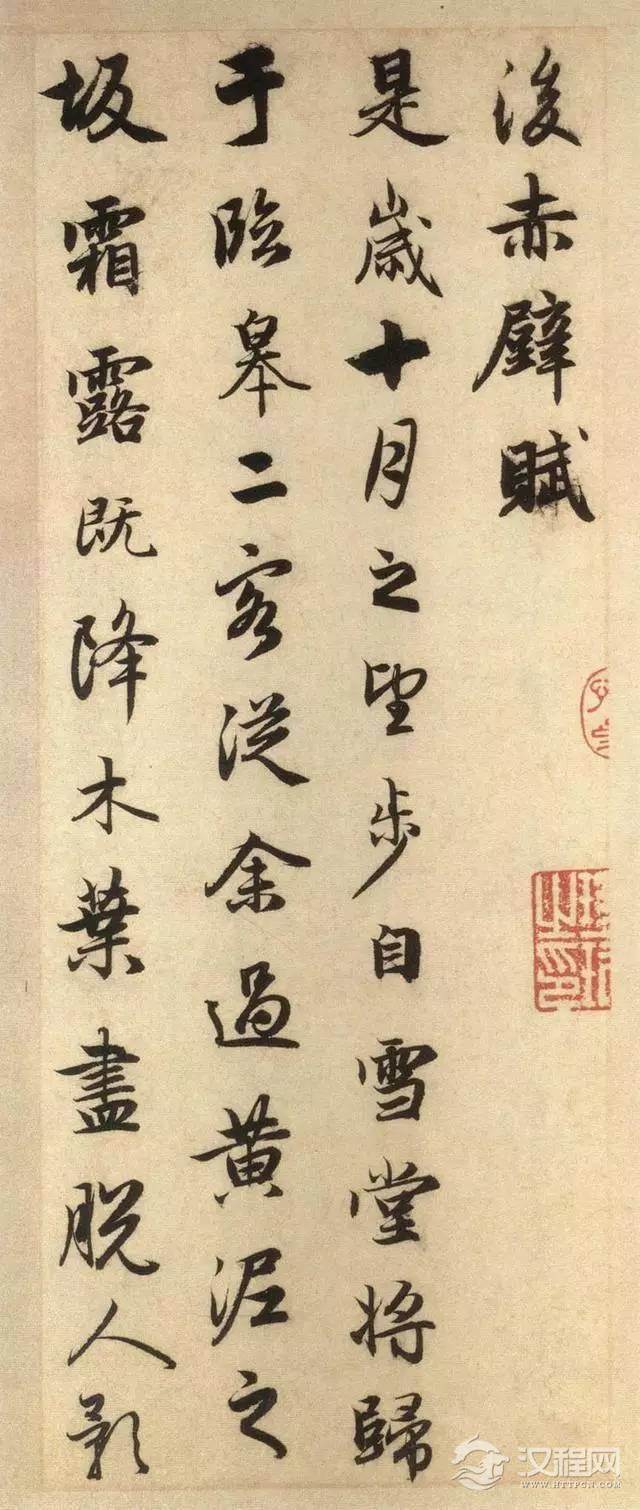 後赤壁賦
是歲十月之望步自雪堂將歸
于臨皋二客從余過黃泥之
坂霜露既降木葉盡脫人影
汉程网
HTTPCN.COM